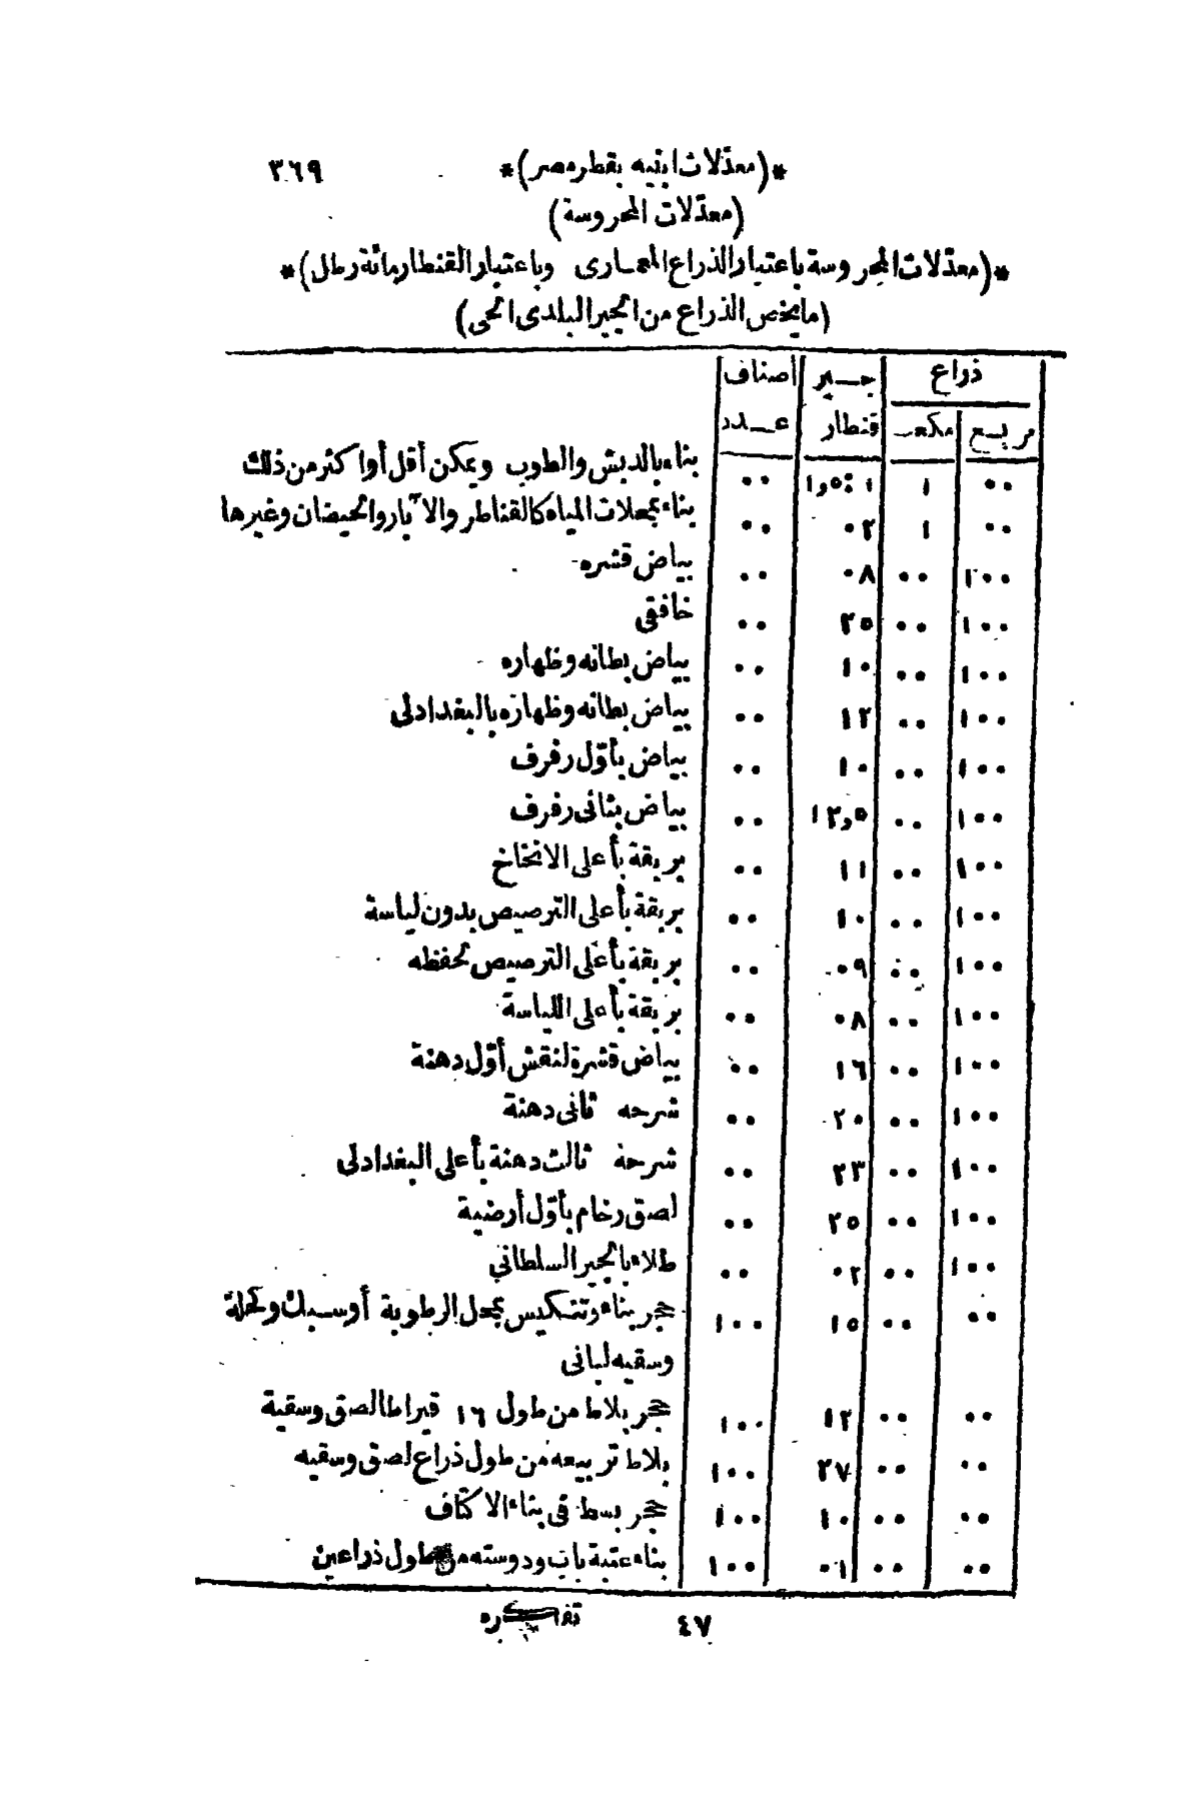 *(معدّلات ابنيه بقطر مصر)* ٣٦٩
(معدّلات المحروسة)
*(معدّلات المحروسة باعتبار الذراع المعمارى وباعتبار القنطار مائة رطل)*
(ما يخص الذراع من الجير البلدى الحى)
ذراع جير اصناف
مربع مكعب قنطار عدد
٠٠ ١ ٠٠ بناء بالدبش والطوب ويمكن أقل أو اكثر من ذلك
٠٠ ١ ٠٢ ٠٠ بناء بمحلات المياه كالقناطر والآبار والحيضان وغيرها
١٠٠ ٠٠ ٠٨ ٠٠ بياض قشره
١٠٠ ٠٠ ٢٥ ٠٠ خافقى
١٠٠ ٠٠ ١٠ ٠٠ بياض بطانه وظهاره
١٠٠ ٠٠ ١٢ ٠٠ بياض بطانه وظهاره بالبغدادلى
١٠٠ ٠٠ ١٠ ٠٠ بياض بأوّل رفرف
١٠٠ ٠٠ ١٢٫٥ ٠٠ بياض بثانى رفرف
١٠٠ ٠٠ ١١ ٠٠ بريقة بأعلى الانخاخ
١٠٠ ٠٠ ١٠ ٠٠ بريقة بأعلى الترصيص بدون لياسة
١٠٠ ٠٠ ٠٩ ٠٠ بريقة بأعلى الترصيص لحفظه
١٠٠ ٠٠ ٠٨ ٠٠ بريقة بأعلى اللياسة
١٠٠ ٠٠ ١٦ ٠٠ بياض قشرة لنقش أوّل دهنة
١٠٠ ٠٠ ٢٠ ٠٠ شرحه ثانى دهنة
١٠٠ ٠٠ ٢٣ ٠٠ شرحة ثالث دهنة بأعلى البغدادلى
١٠٠ ٠٠ ٢٥ ٠٠ لصق رخام بأوّل أرضية
١٠٠ ٠٠ ٠٢ ٠٠ طلاء بالجير السلطانى
٠٠ ٠٠ ١٥ ١٠٠ حجر بناء وتنكيس بمحل الرطوبة أو سبك وكحلة
وسقيه لبانى
٠٠ ٠٠ ١٢ ١٠٠ حجر بلاط من طول ١٦ قيراطا لصق وسقية
٠٠ ٠٠ ٢٧ ١٠٠ بلاط تربيعه من طول ذراع لصق وسقيه
٠٠ ٠٠ ١٠ ١٠٠ حجر بسط فى بناء الاكتاف
٠٠ ٠٠ ٠١ ١٠٠ بناء عتبة باب ودوسته من طول ذراعين
٤٧